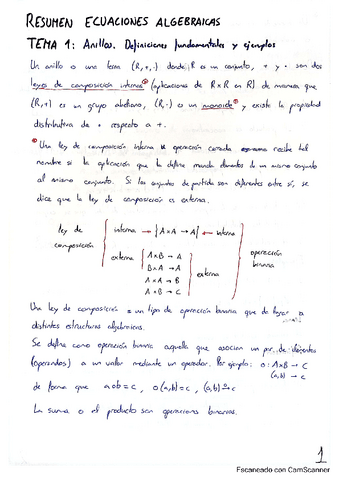 RESUMEN ECUACIONES ALGEBRAICAS
TEMA 1: Anillos. Definiciones fundamentales y ejemplos
Un anillo es una terna (R,+,·) donde R es un conjunto, + y · son dos
leyes de composición internas (aplicaciones de R×R en R) de manera que
(R,+) es un grupo abeliano, (R,·) es un monoide y existe la propiedad
distributiva de · respecto a +.
Una ley de composición interna o operación cerrada recibe tal
nombre si la aplicación que la define manda elementos de un mismo conjunto
al mismo conjunto. Si los conjuntos de partida son diferentes entre sí, se
dice que la ley de composición es externa.
ley de composición
interna → {A×A → A} ← interna
externa
A×B → A
B×A → A
A×A → B
A×B → C
externa
operación binaria
Una ley de composición es un tipo de operación binaria que da lugar a
distintas estructuras algebraicas.
Se define como operación binaria aquella que asocian un par de elementos
(operandos) a un valor mediante un operador. Por ejemplo: o: A×B → C
(a,b) → c
de forma que aob=c, o(a,b)=c, (a,b)→c
La suma o el producto son operaciones binarias.
1
Escaneado con CamScanner